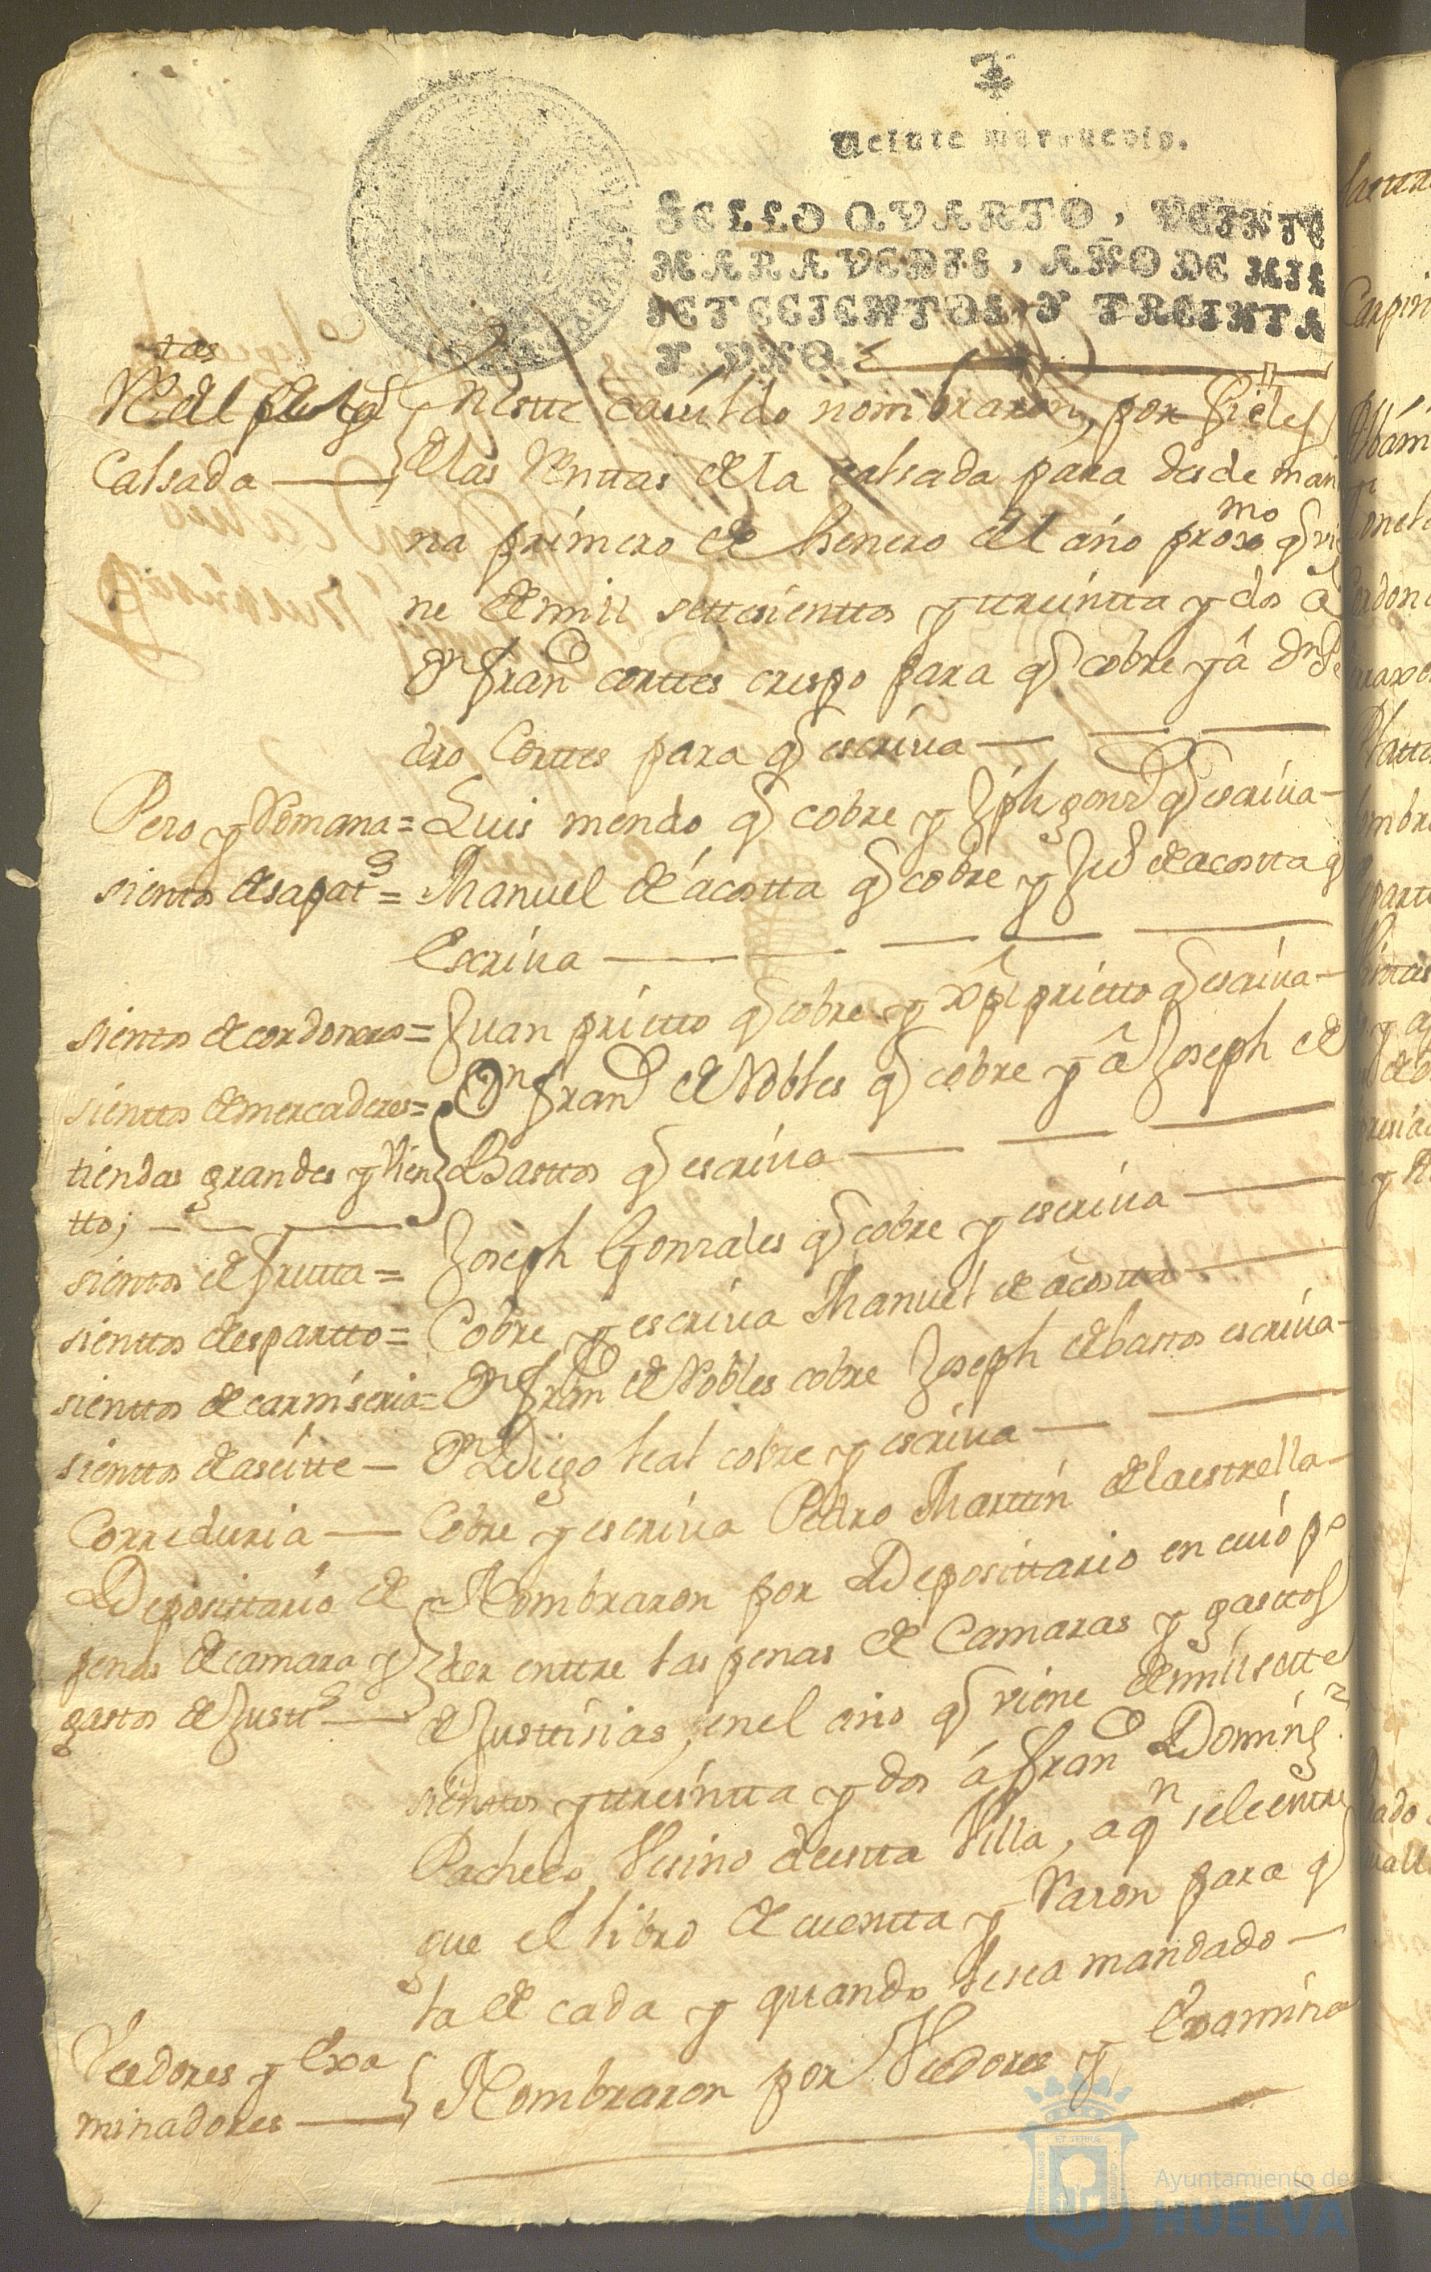 Veinte marauedis.
SELLO QVARTO, VEINTE
MARAVEDIS, AÑO DE MIL
SETECIENTOS Y TREINTA
Y VNO.
Calsada — nestte Cauildo nombraron, por fieles
de las Renttas de la calsada para desde mañ
na primero de henero del año proxmo q vie
ne de mill settesienttos y ttreintta y dos a
Dn franco corttes crespo para q cobre y â Dn Pe
dro Corttes para q escriua —
Peso y Romana = Luis mendo q cobre y Jph gonz q escriua —
sientos de sapatos = Manuel de acostta q cobre y Ju de acostta q
Escriua —
sientos de cordoneros = Juan prietto q cobre y xpl prietto q escriua —
sienttos de mercaderes = Dn franco de Robles q cobre y â Joseph de
tiendas grandes y Vien Basttos q escriua —
tto; —
sientos de frutta = Joseph Gonzales q cobre y escriua —
sienttos de espartto = Cobre y escriua Manuel de acostta —
sienttos de carniseria = Dn fran de Robles cobre Joseph de bastos escriua —
sienttos de aseitte — Dn Diego leal cobre y escriua —
Correduria — Cobre y escriua Pedro Marttin de la estrella —
Deposittario de Nombraron por Deposittario en cuio po
penas de camara y der enttre las penas de Camaras y gasttos
gastos de Justta — de Justtisias, en el año q viene de mill sette
sienttos y ttreintta y dos á franco Doming
Pacheco, Vesino de estta Villa, a qn se le enttre
gue el libro de cuentta y Rason para q
la de cada y quando le sea mandado —
Veedores y Exa
minadores — Nombraron por Veedores y Examina
Ayuntamiento de
HUELVA